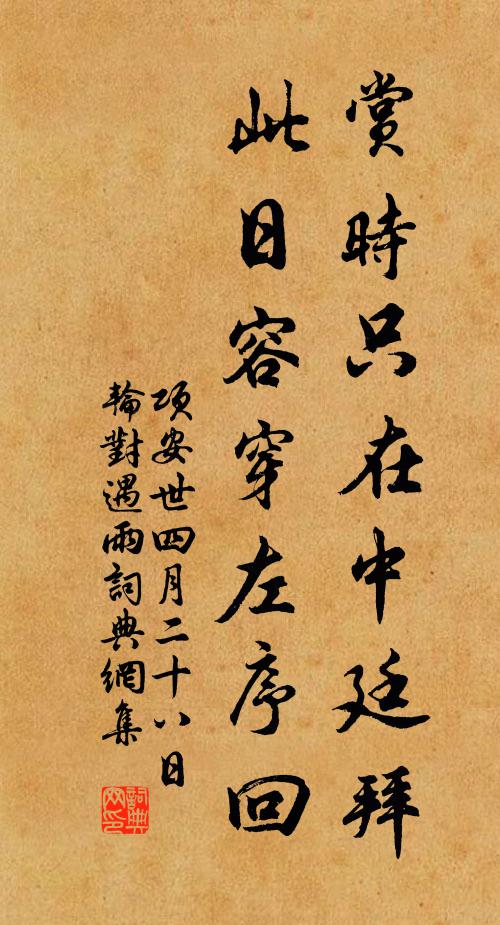 賞時只在中廷拜
此日容穿左序回
項安世四月二十八日
輪對遇雨詞典網集
詞典
网印